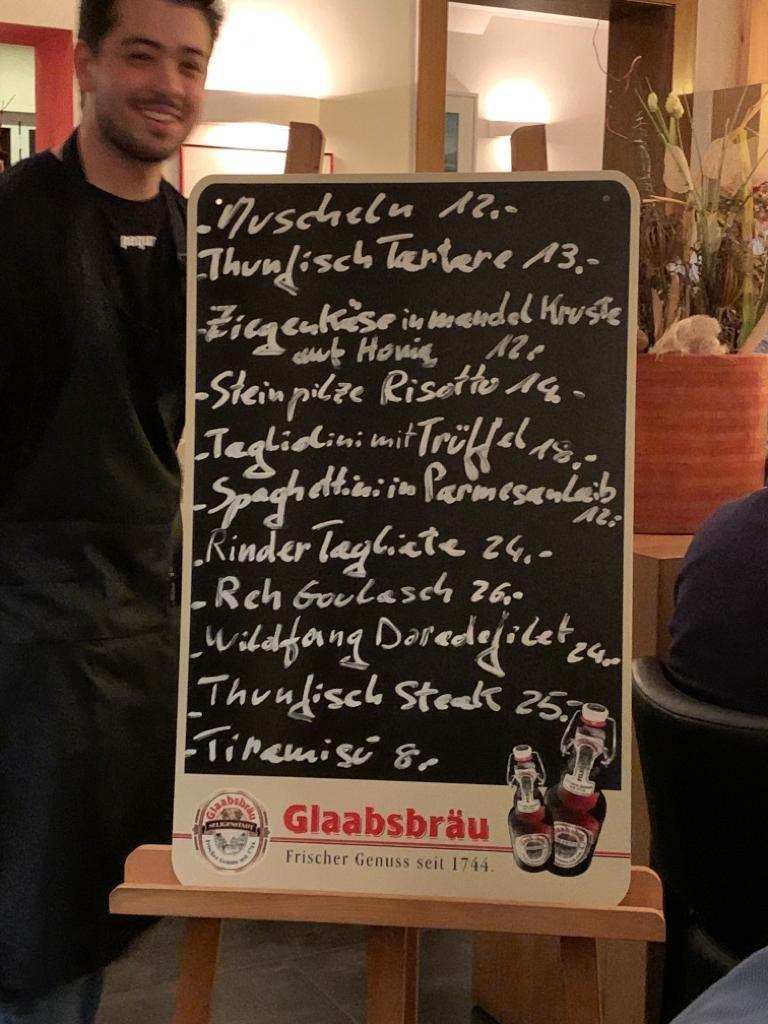 - Muscheln 12.-
- Thunfisch Tartare 13.-
- Ziegenkäse in mandel Kruste
auf Honig 12.
- Steinpilze Risotto 14.-
- Tagliolini mit Trüffel 18.-
- Spaghettini in Parmesanlaib
12.-
- Rinder Tagliata 24.-
- Reh Goulasch 26.-
- Wildfang Doradefilet 24.-
- Thunfisch Steak 25.-
- Tiramisu 8.-
Glaabsbräu
SELIGENSTADT
Frischer Genuss seit 1744
Glaabsbräu
Frischer Genuss seit 1744.